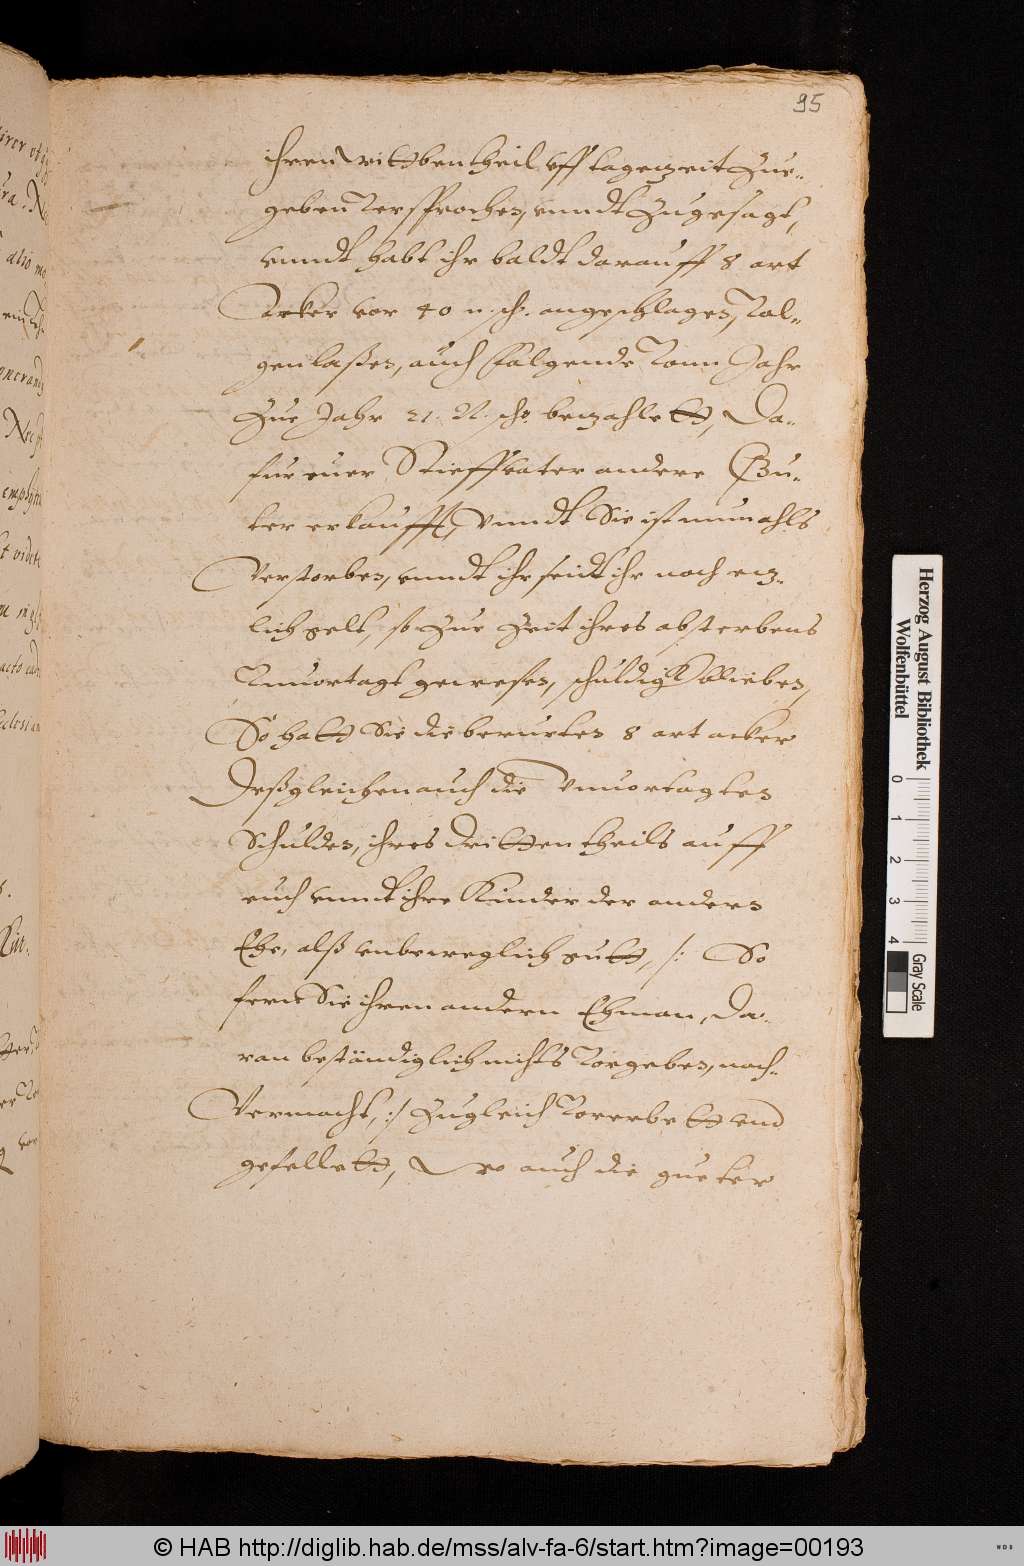 95
ihren dritten theil vff tagezeit zue-
geben versprochen, vnndt zugesagt,
vnndt habt ihr baldt darauff 8 art
Acker vor 40 n. sch. angeschlagen, Vol-
gen laßen, auch folgende vom Jahr
Zue Jahr 21. N. scho. bezahlett, Da-
fur euer Stieffvater andere Gu-
ter erkaufft, vnndt Sie ist nunmahls
Verstorben, vnndt ihr seidt ihr noch etz-
lich gelt, so Zue Zeit ihres absterbens
Vnuortagt gewesen, schuldig blieben,
So hatt Sie die berurten 8 art acker
Deßgleichen auch die vnuortagten
Schulden, ihres dritten theils auff
euch vnndt ihre Kinder der andern
Ehe, alß vnbeweglich gutt, /: So
fern Sie ihren andern Ehman, da-
ran bestendiglich nichts Vorgeben, noch
Vermacht, :/ Zugleich Vererbett vnd
gefellett, Wo auch die gueter
Herzog August Bibliothek
Wolfenbüttel
0 1 2 3 4
Gray Scale
© HAB http://diglib.hab.de/mss/alv-fa-6/start.htm?image=00193
WDB